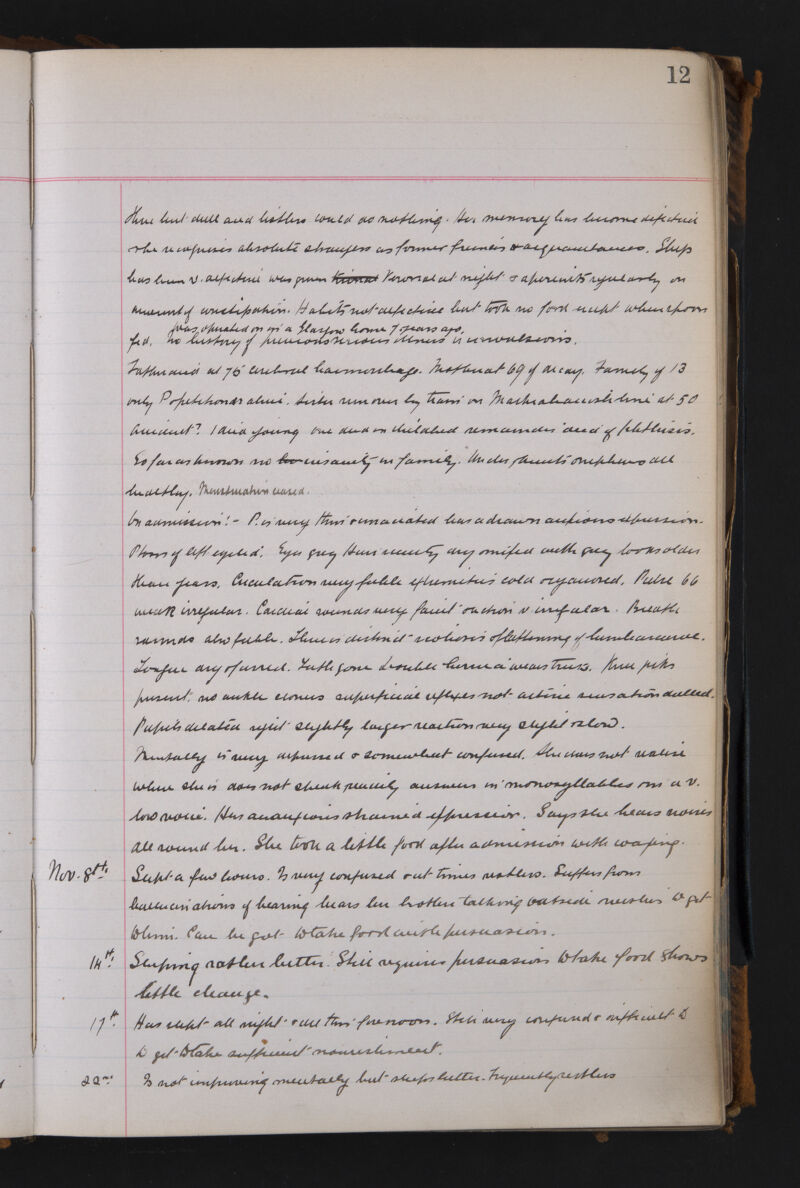 12
Here but dull and listless could do nothing. Her memory has become defective
she recognises absolute strangers as former friends & acquaintances. Sleep
has been v. defective was given Trional Veronal at night & aperients regularly on
account of constipation. Habits not defective but took no food except when spoon
fed. No history of previous serious illness or convulsions.
was operated on in a Glasgow home 7 years ago.
Father died at 75 cerebral haemorrhage. Mother at 69 of decay. Family of 13
only P. & alive. Sister run over by train on line at 50
Accident? 1 died young one died in childbed remainder dead of phthisis.
So far as known no insanity in family. Uncles, Aunts nephews all
healthy. Menstruation ceased.
On admission:- P. is very thin & emaciated has a drawn anxious expression.
Ptosis of left eyelid. Eyes grey Hair scanty dry mixed with grey looks older
than years. Circulation very feeble extremities cold & cyanosed. Pulse 66
weak irregular. Cardiac sounds very faint & action v irregular. Breath
sounds also feeble. There is distinct scoliosis & flattening of lumbar curve.
Tongue dry & furred. Teeth gone Double hernia wears truss. Knee jerks
present, no ankle clonus superficial reflexes not active sensation dulled.
Pupils dilated right slightly larger reaction very slight & slow.
Mentally is very depressed & somewhat confused. She does not realise
where she is does not speak readily answers in monosyllables in a v.
low voice. Has an anxious strained expression. Says she hears voices
all round her. She took a little food after admission with coaxing.
Nov. 8th. Slept a few hours. Is very confused & at times restless. Suffers from
hallucinations of hearing hears her brother talking outside & wishes to get
to him. Can be got to take food with persuasion.
14th. Sleeping rather better. Still requires persuasion to take food Shows
little change.
17th. Has slept all night & all this forenoon. Still very confused & difficult to
to get to take sufficient nourishment.
22nd. Is not improving mentally but sleeps better. Frequently restless